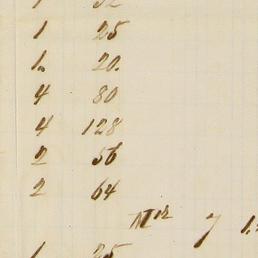 1 32
1 25
1. 20.
4 80
4 128
2 56
2 64
7 1.
1 25